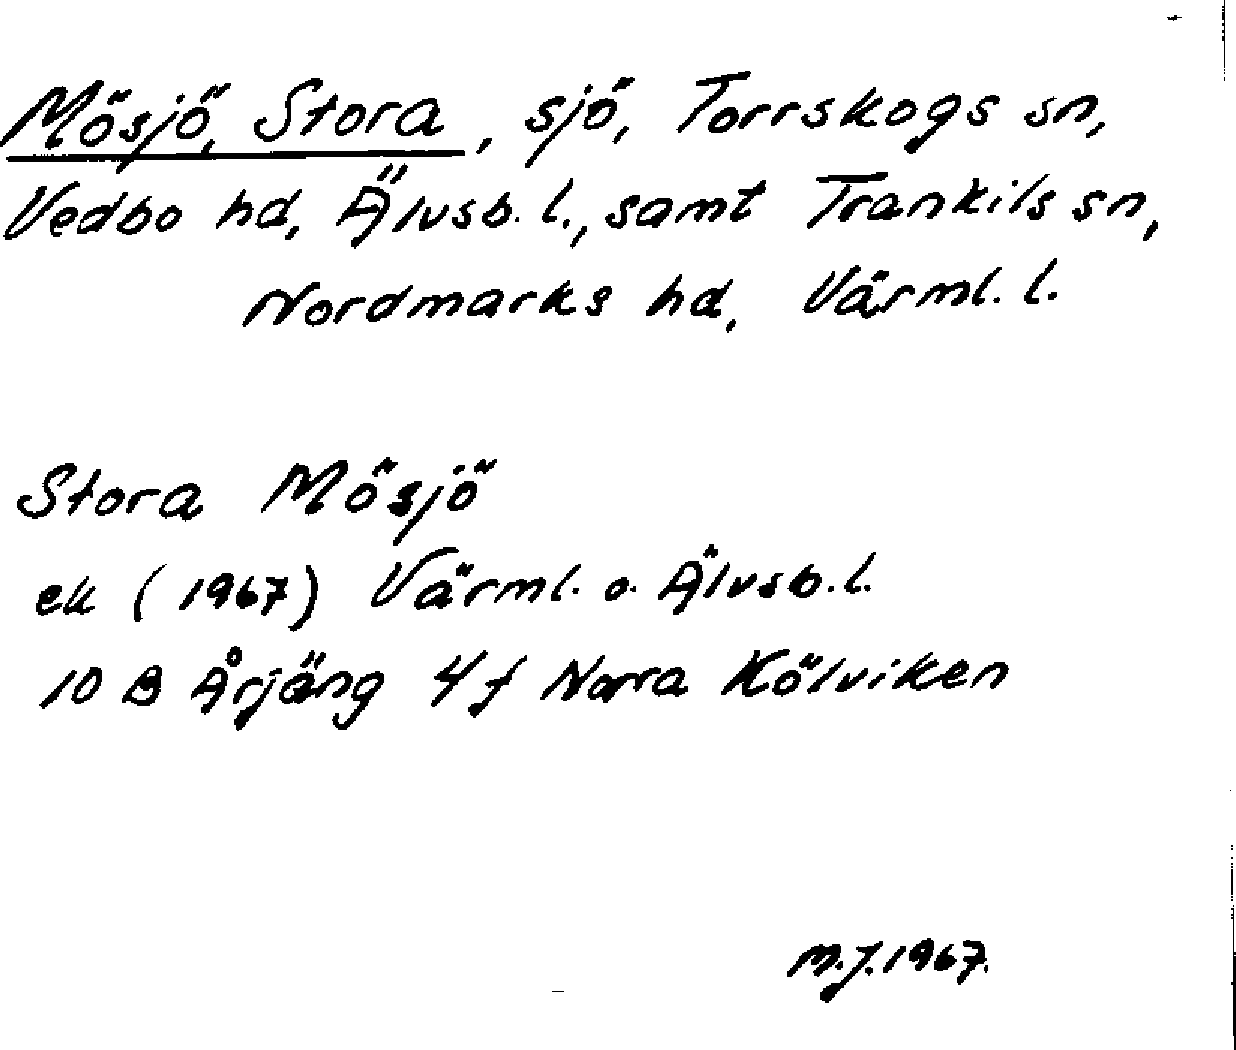 Mösjö, Stora, sjö, Torrskogs sn,
Vedbo hd, Älvsb. l., samt Trankils sn,
Nordmarks hd, Värml. l.
Stora Mösjö
ek (1967) Värml. o. Älvsb. l.
10 B Årjäng 4 f Norra Kölviken
M.J. 1967.